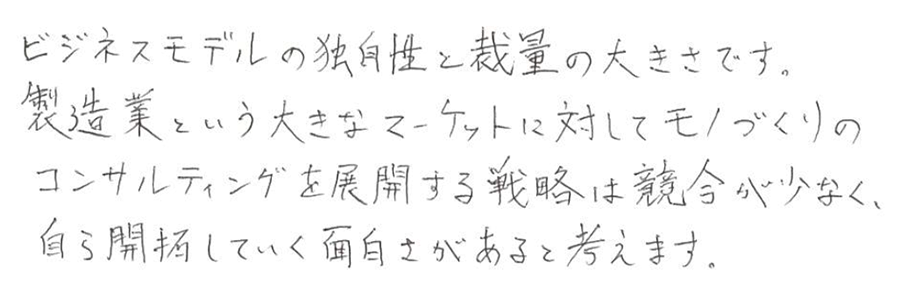 ビジネスモデルの独自性と裁量の大きさです。
製造業という大きなマーケットに対してモノづくりの
コンサルティングを展開する戦略は競合が少なく、
自ら開拓していく面白さがあると考えます。